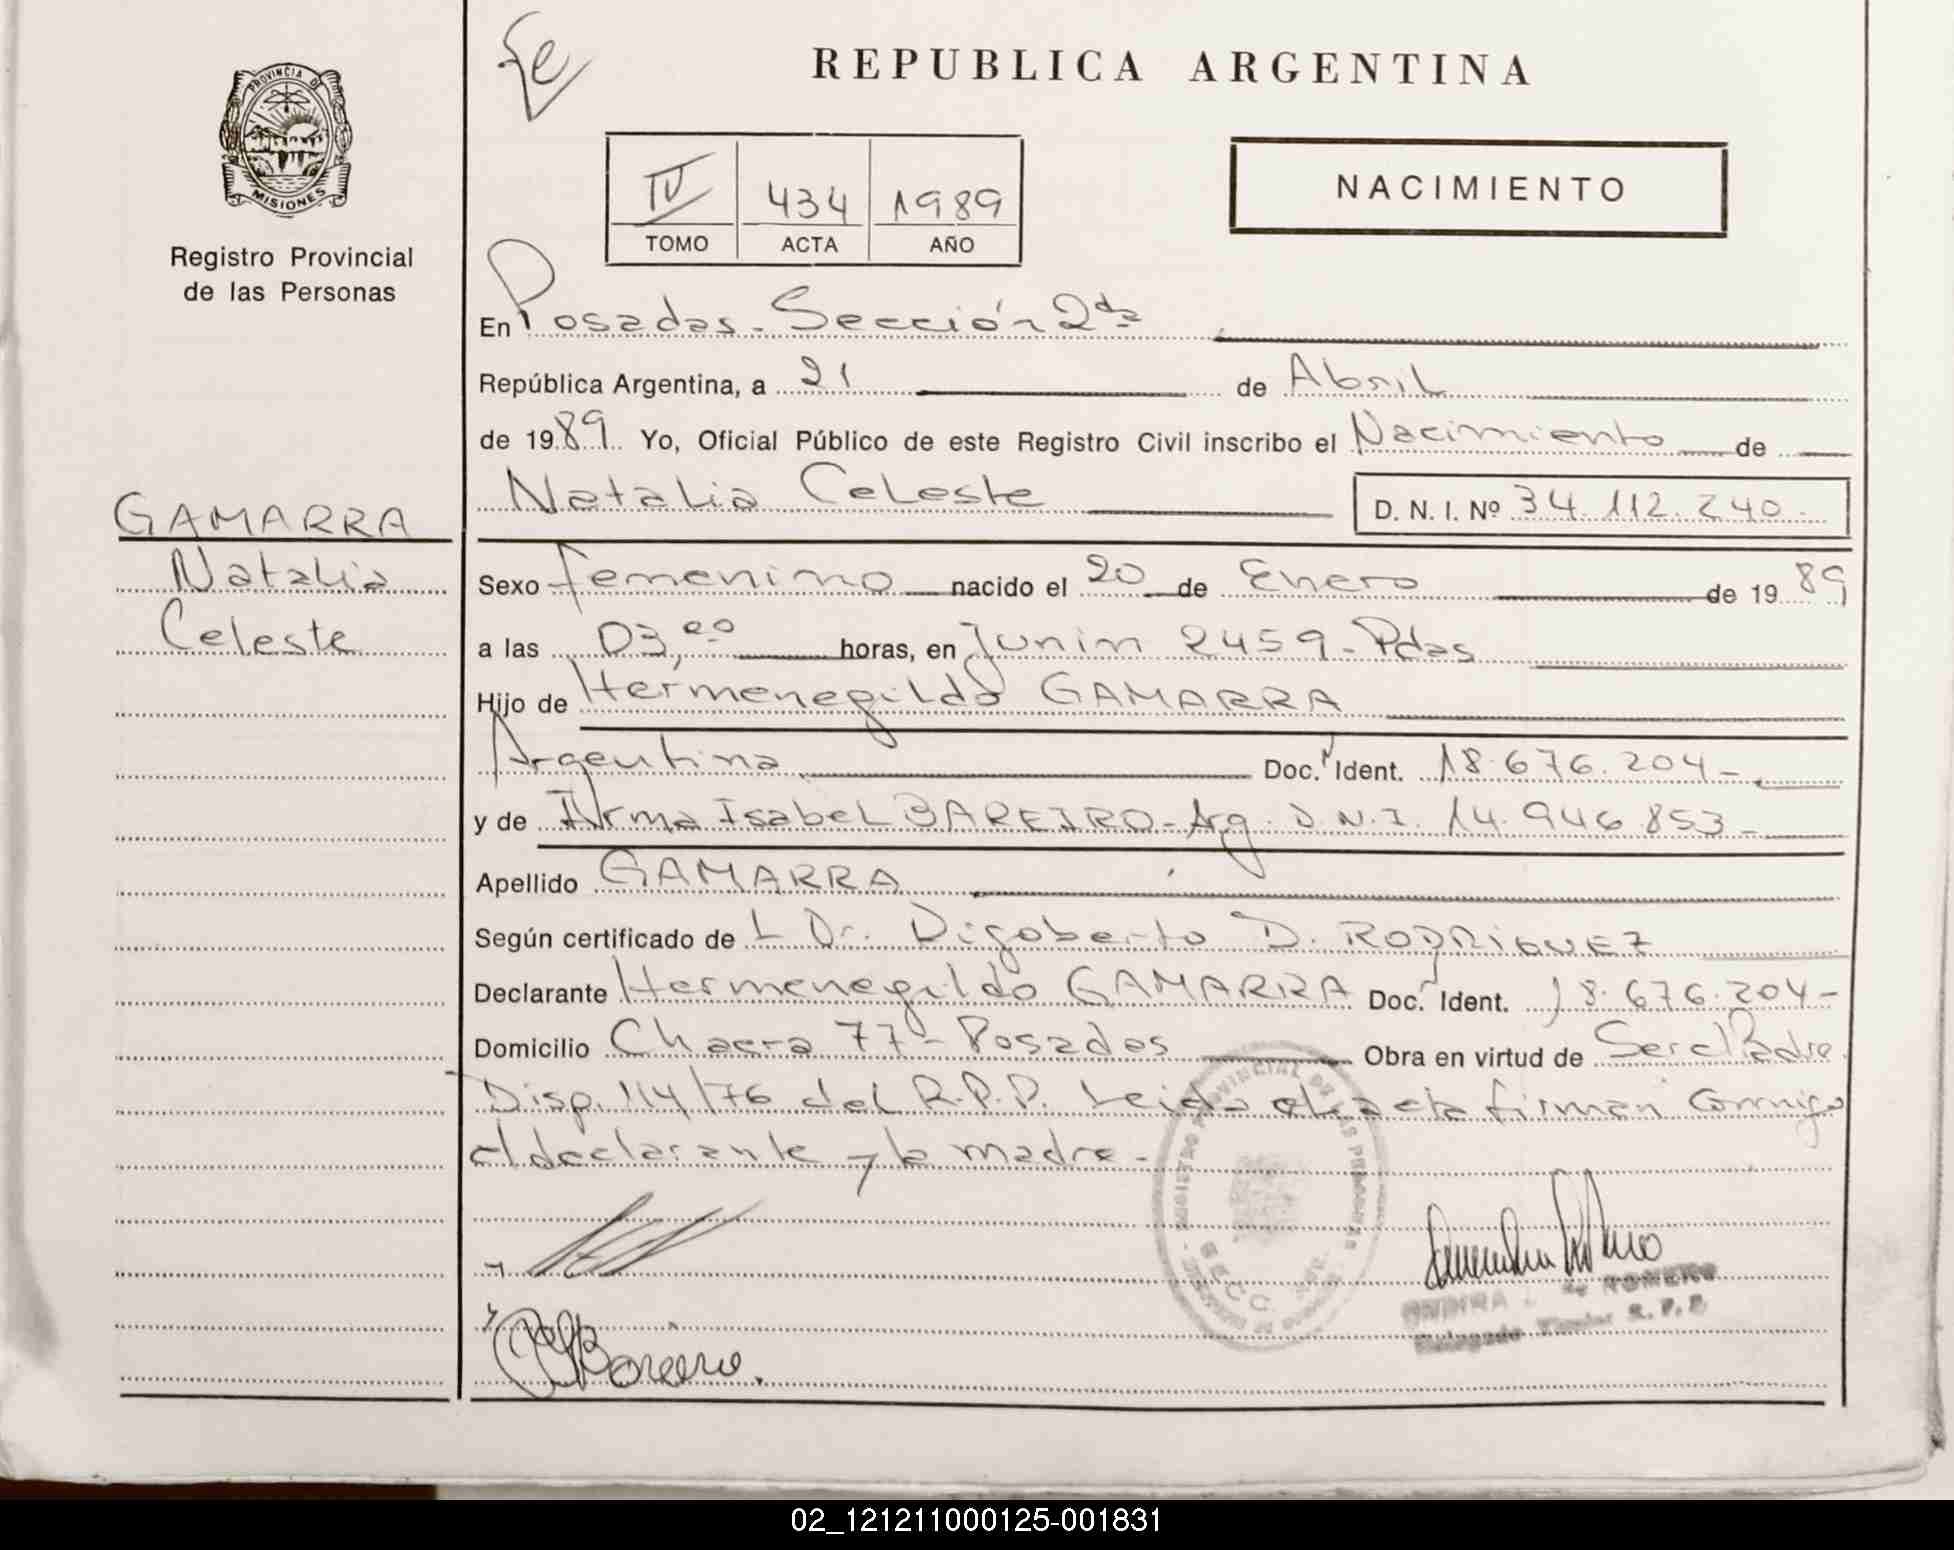 Fe
REPUBLICA ARGENTINA
PROVINCIA DE
MISIONES
Registro Provincial
de las Personas
IV 434 1989
TOMO ACTA AÑO
NACIMIENTO
En Posadas - Sección 2da
República Argentina, a 21 de Abril
de 1989. Yo, Oficial Público de este Registro Civil inscribo el Nacimiento de
Natalia Celeste D. N. I. Nº 34.112.240.-
GAMARRA
Natalia
Celeste
Sexo femenino nacido el 20 de Enero de 1989
a las 03,00 horas, en Junin 2459 - Pdas
Hijo de Hermenegildo GAMARRA
Argentina Doc. Ident. 18.676.204 -
y de Irma Isabel BAREIRO - Arg. D.N.I. 14.946.853 -
Apellido GAMARRA
Según certificado de L Dr. Digoberto D. RODRIGUEZ
Declarante Hermenegildo GAMARRA Doc. Ident. 18.676.204 -
Domicilio Chacra 77 - Posadas Obra en virtud de Ser el Padre
Disp. 114/76 del R.P.P. Leida el acta firman conmigo
el declarante y la madre -
REGISTRO PROVINCIAL DE LAS PERSONAS
Bareiro.
de ROMERO
Delegado Titular R. P. P.
02_121211000125-001831